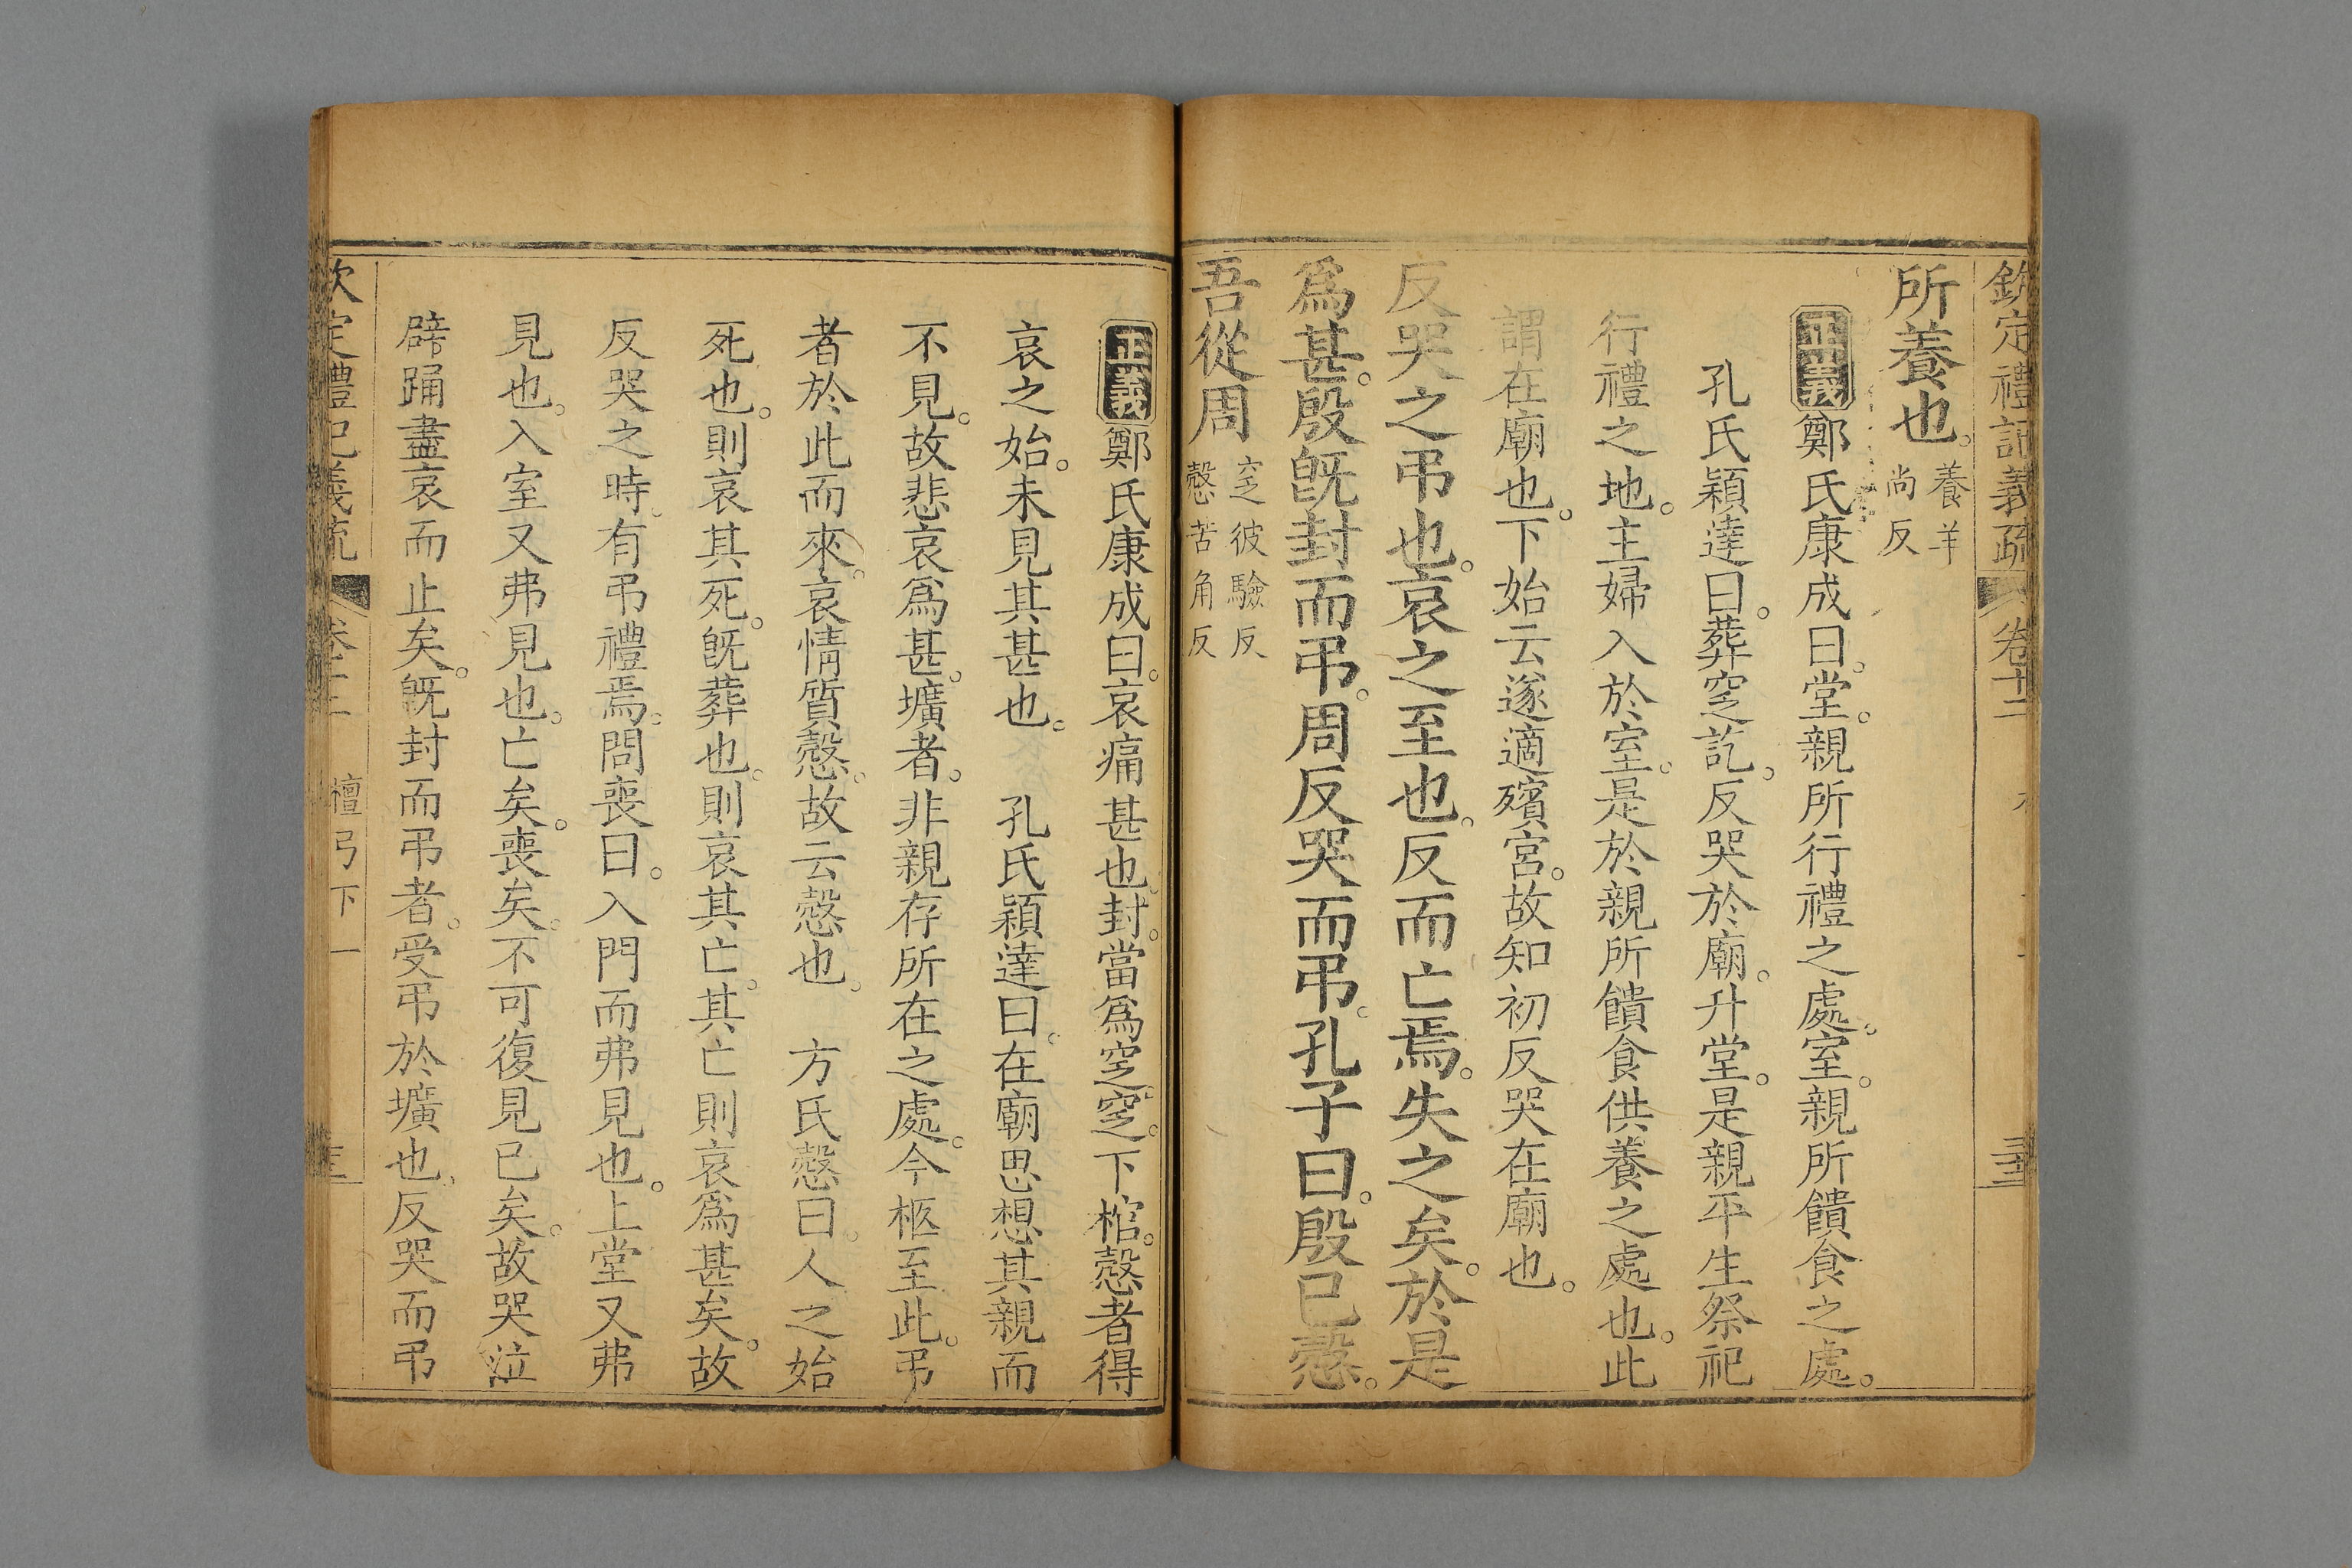 欽定禮記義疏 卷十二
所養也。養羊尚反
正義鄭氏康成曰。堂。親所行禮之處。室。親所饋食之處。
孔氏穎達曰。葬窆訖。反哭於廟。升堂。是親平生祭祀
行禮之地。主婦入於室。是於親所饋食供養之處也。此
謂在廟也。下始云遂適殯宮。故知初反哭在廟也。
反哭之弔也。哀之至也。反而亡焉。失之矣。於是
爲甚。殷旣封而弔。周反哭而弔。孔子曰。殷已慤。
吾從周窆彼驗反慤苦角反
正義鄭氏康成曰。哀痛甚也。封。當爲窆。窆。下棺。慤者得
哀之始。未見其甚也。 孔氏穎達曰。在廟思想其親而
不見。故悲哀爲甚。壙者。非親存所在之處。今柩至此。弔
者於此而來。哀情質慤。故云慤也。 方氏慤曰。人之始
死也。則哀其死。旣葬也。則哀其亡。其亡則哀爲甚矣。故
反哭之時。有弔禮焉。問喪曰。入門而弗見也。上堂又弗
見也。入室又弗見也。亡矣。喪矣。不可復見已矣。故哭泣
辟踊盡哀而止矣。旣封而弔者。受弔於壙也。反哭而弔
欽定禮記義疏 卷十二 檀弓下一